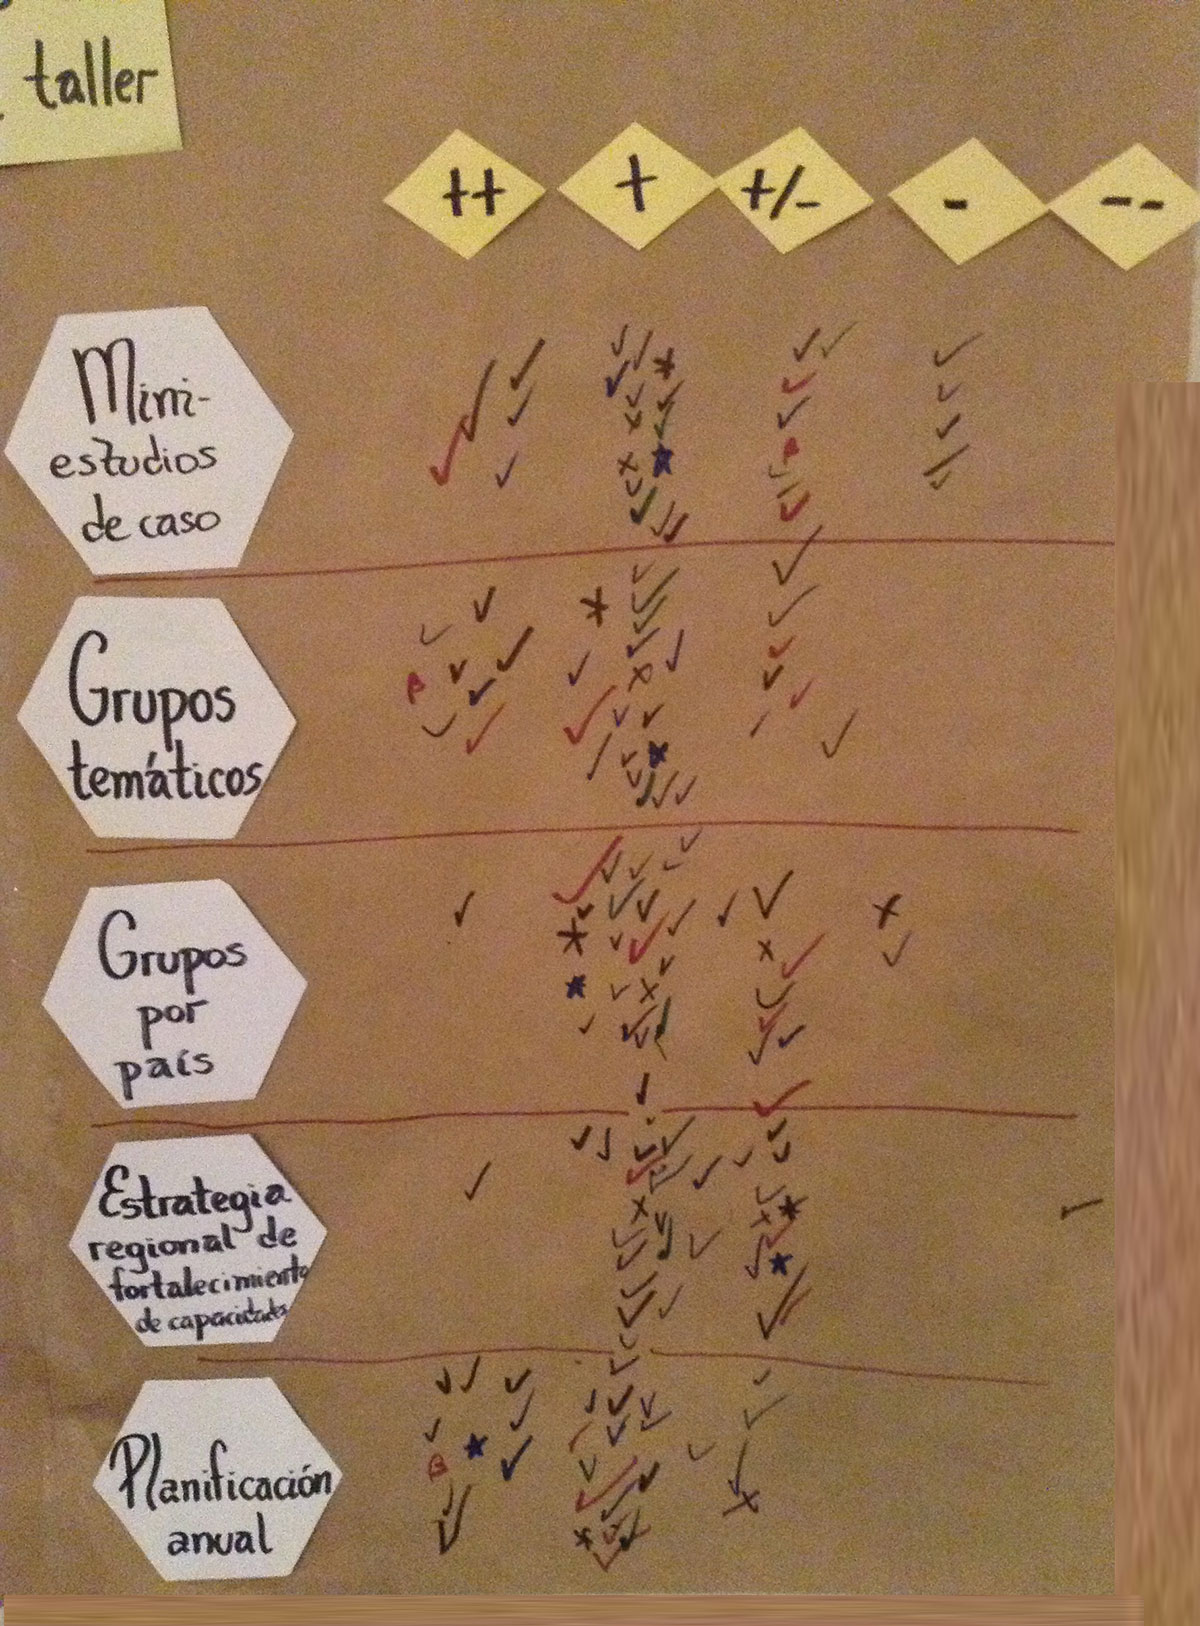 taller
++
+
+/-
-
--
Mini-
estudios
de caso
Grupos
temáticos
Grupos
por
país
Estrategia
regional de
fortalecimiento
de capacidades
Planificación
anual